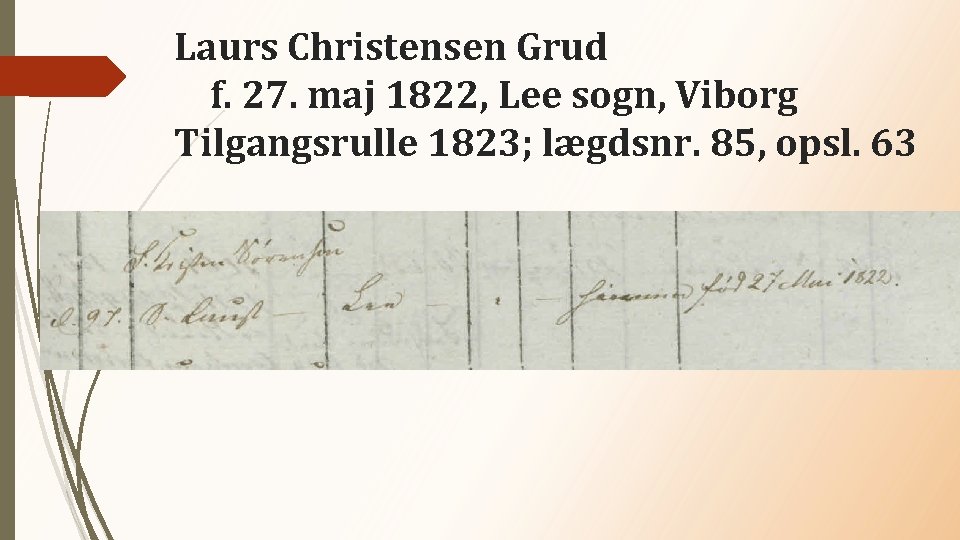 Laurs Christensen Grud
f. 27. maj 1822, Lee sogn, Viborg
Tilgangsrulle 1823; lægdsnr. 85, opsl. 63
F. Kristen Sørensen
d. 97. S. Laust — Lee — " — hiemme fød 27 Mai 1822.